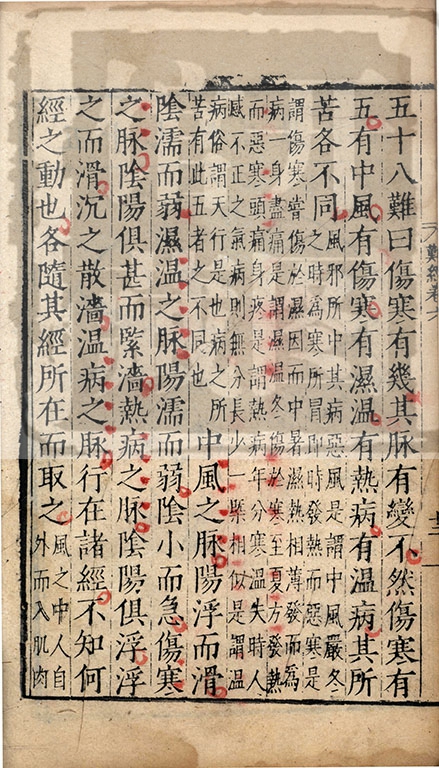 難經卷六
五十八難曰傷寒有幾其脉有變不然傷寒有
五有中風有傷寒有濕温有熱病有温病其所
苦各不同
風邪所中其病惡風是謂中風嚴冬
之時為寒所冒即時發熱而惡寒是
謂傷寒嘗傷於濕因而中暑濕熱相薄發而為
病一身盡痛是謂濕温冬傷於寒至夏方發熱
而惡寒頭痛身疼是謂熱病年分寒温失時人
感不正之氣病則無分長少一槩相似是謂温
病俗謂天行是也病之所
苦有此五者之不同也
中風之脉陽浮而滑
陰濡而弱濕温之脉陽濡而弱陰小而急傷寒
之脉陰陽俱甚而緊濇熱病之脉陰陽俱浮浮
之而滑沉之散濇温病之脉行在諸經不知何
經之動也各隨其經所在而取之
風之中人自
外而入肌肉